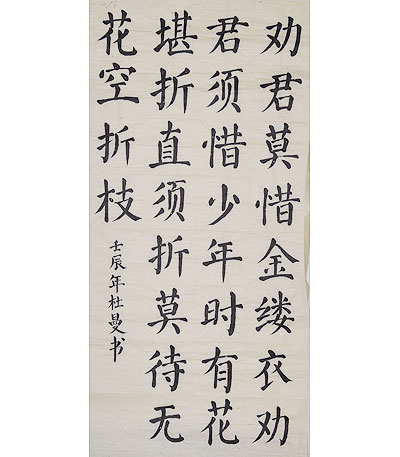 劝君莫惜金缕衣劝
君须惜少年时有花
堪折直须折莫待无
花空折枝
壬辰年杜曼书